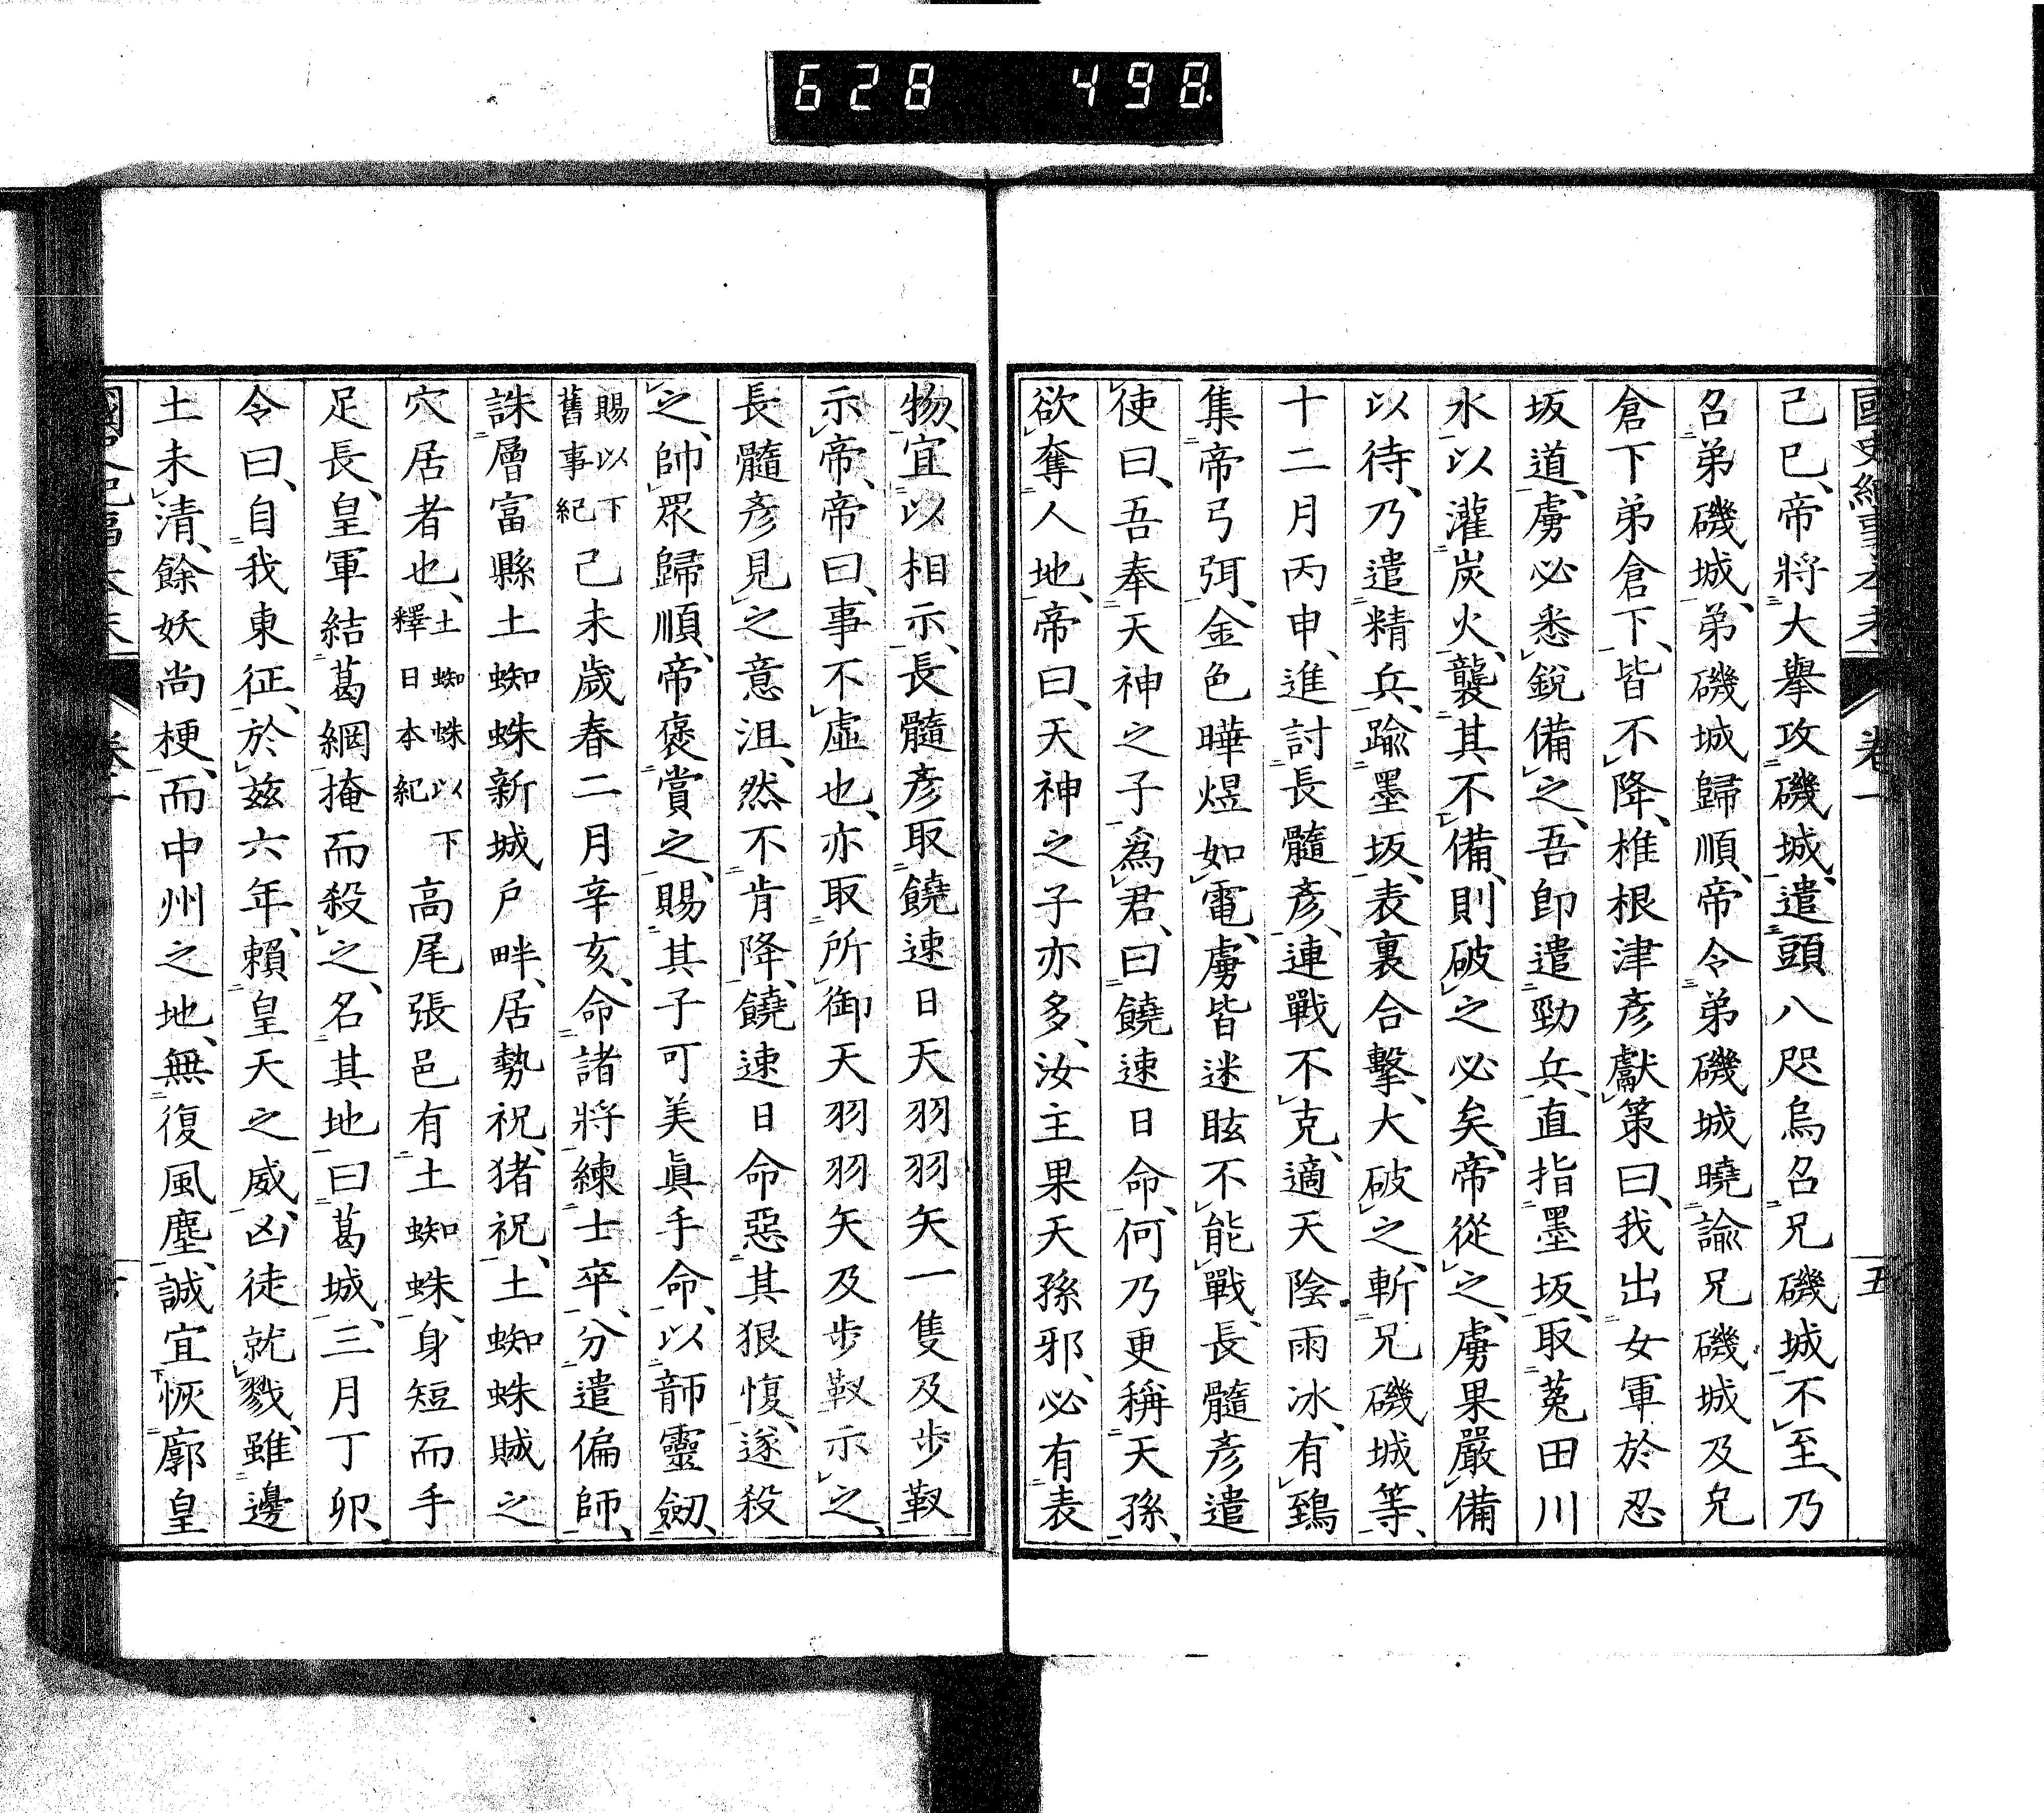 628 498.
國史紀事本末 卷一 五
己巳、帝將大擧攻磯城、遣頭八咫烏召兄磯城不至、乃
召弟磯城、弟磯城歸順、帝令弟磯城曉諭兄磯城及兄
倉下弟倉下、皆不降、椎根津彦獻策曰、我出女軍於忍
坂道、虜必悉銳備之、吾卽遣勁兵、直指墨坂、取菟田川
水以灌炭火、襲其不備、則破之必矣、帝從之、虜果嚴備
以待、乃遣精兵、踰墨坂、表裏合擊、大破之、斬兄磯城等、
十二月丙申、進討長髓彦、連戰不克、適天陰雨冰、有鵄
集帝弓弭、金色曄煜如電、虜皆迷眩不能戰、長髓彦遣
使曰、吾奉天神之子爲君、曰饒速日命、何乃更稱天孫、
欲奪人地、帝曰、天神之子亦多、汝主果天孫邪、必有表
物、宜以相示、長髓彦取饒速日天羽羽矢一隻及步靫
示帝、帝曰、事不虛也、亦取所御天羽羽矢及步靫示之、
長髓彦見之意沮、然不肯降、饒速日命惡其狠愎、遂殺
之、帥眾歸順、帝褒賞之、賜其子可美眞手命、以韴靈劒、
賜以下舊事紀 己未歲春二月辛亥、命諸將練士卒、分遣偏師、
誅層富縣土蜘蛛新城戶畔、居勢祝、猪祝、土蜘蛛賊之
穴居者也、土蜘蛛以下釋日本紀 高尾張邑有土蜘蛛、身短而手
足長、皇軍結葛綱掩而殺之、名其地曰葛城、三月丁卯、
令曰、自我東征、於茲六年、賴皇天之威、凶徒就戮、雖邊
土未清、餘妖尚梗、而中州之地、無復風塵、誠宜恢廓皇